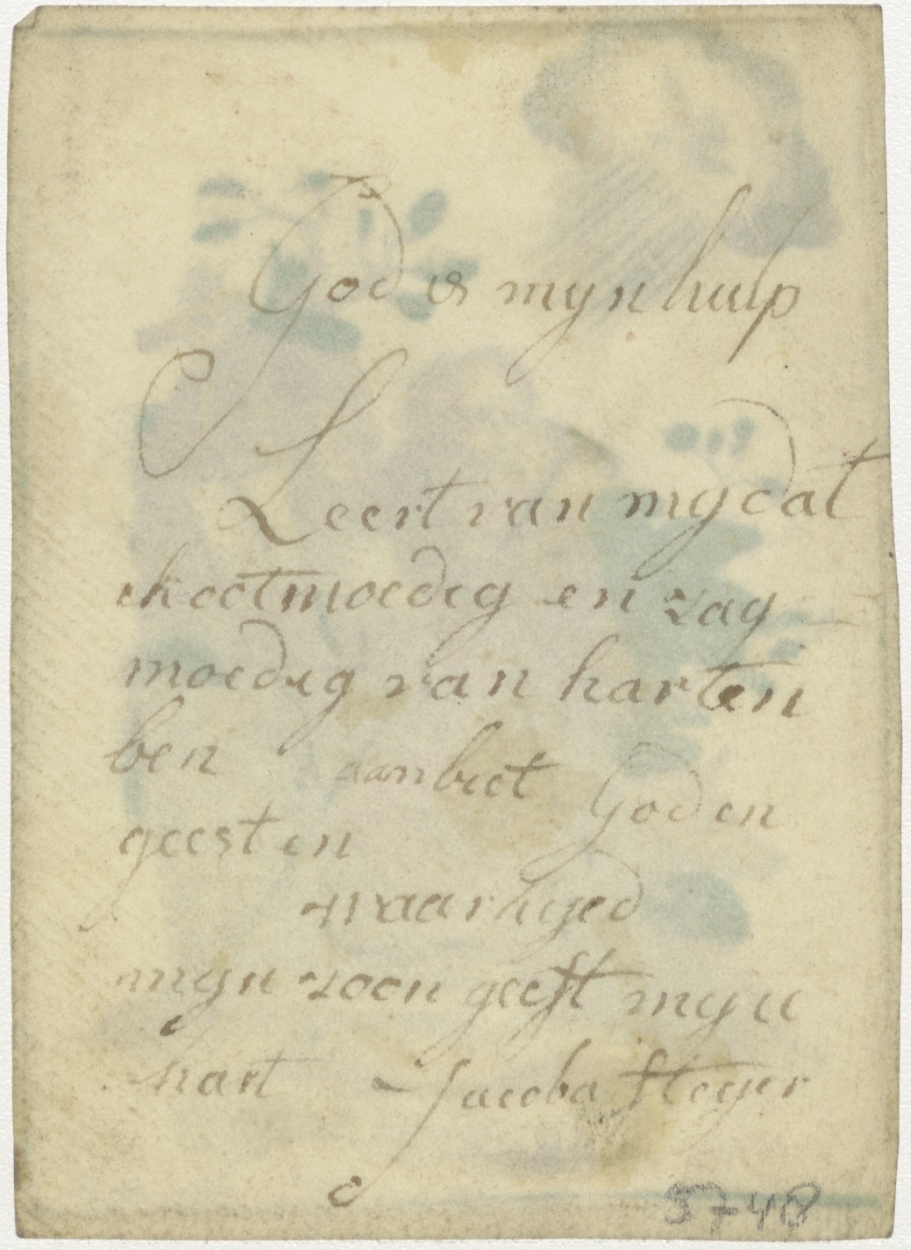 God is myn hulp
Leert van my dat
ik ootmoedig en zag
moedig van harten
ben aanbiet God en
geest en
waarhyed
myn zoon geeft my u
hart Jacoba Steyer
5748